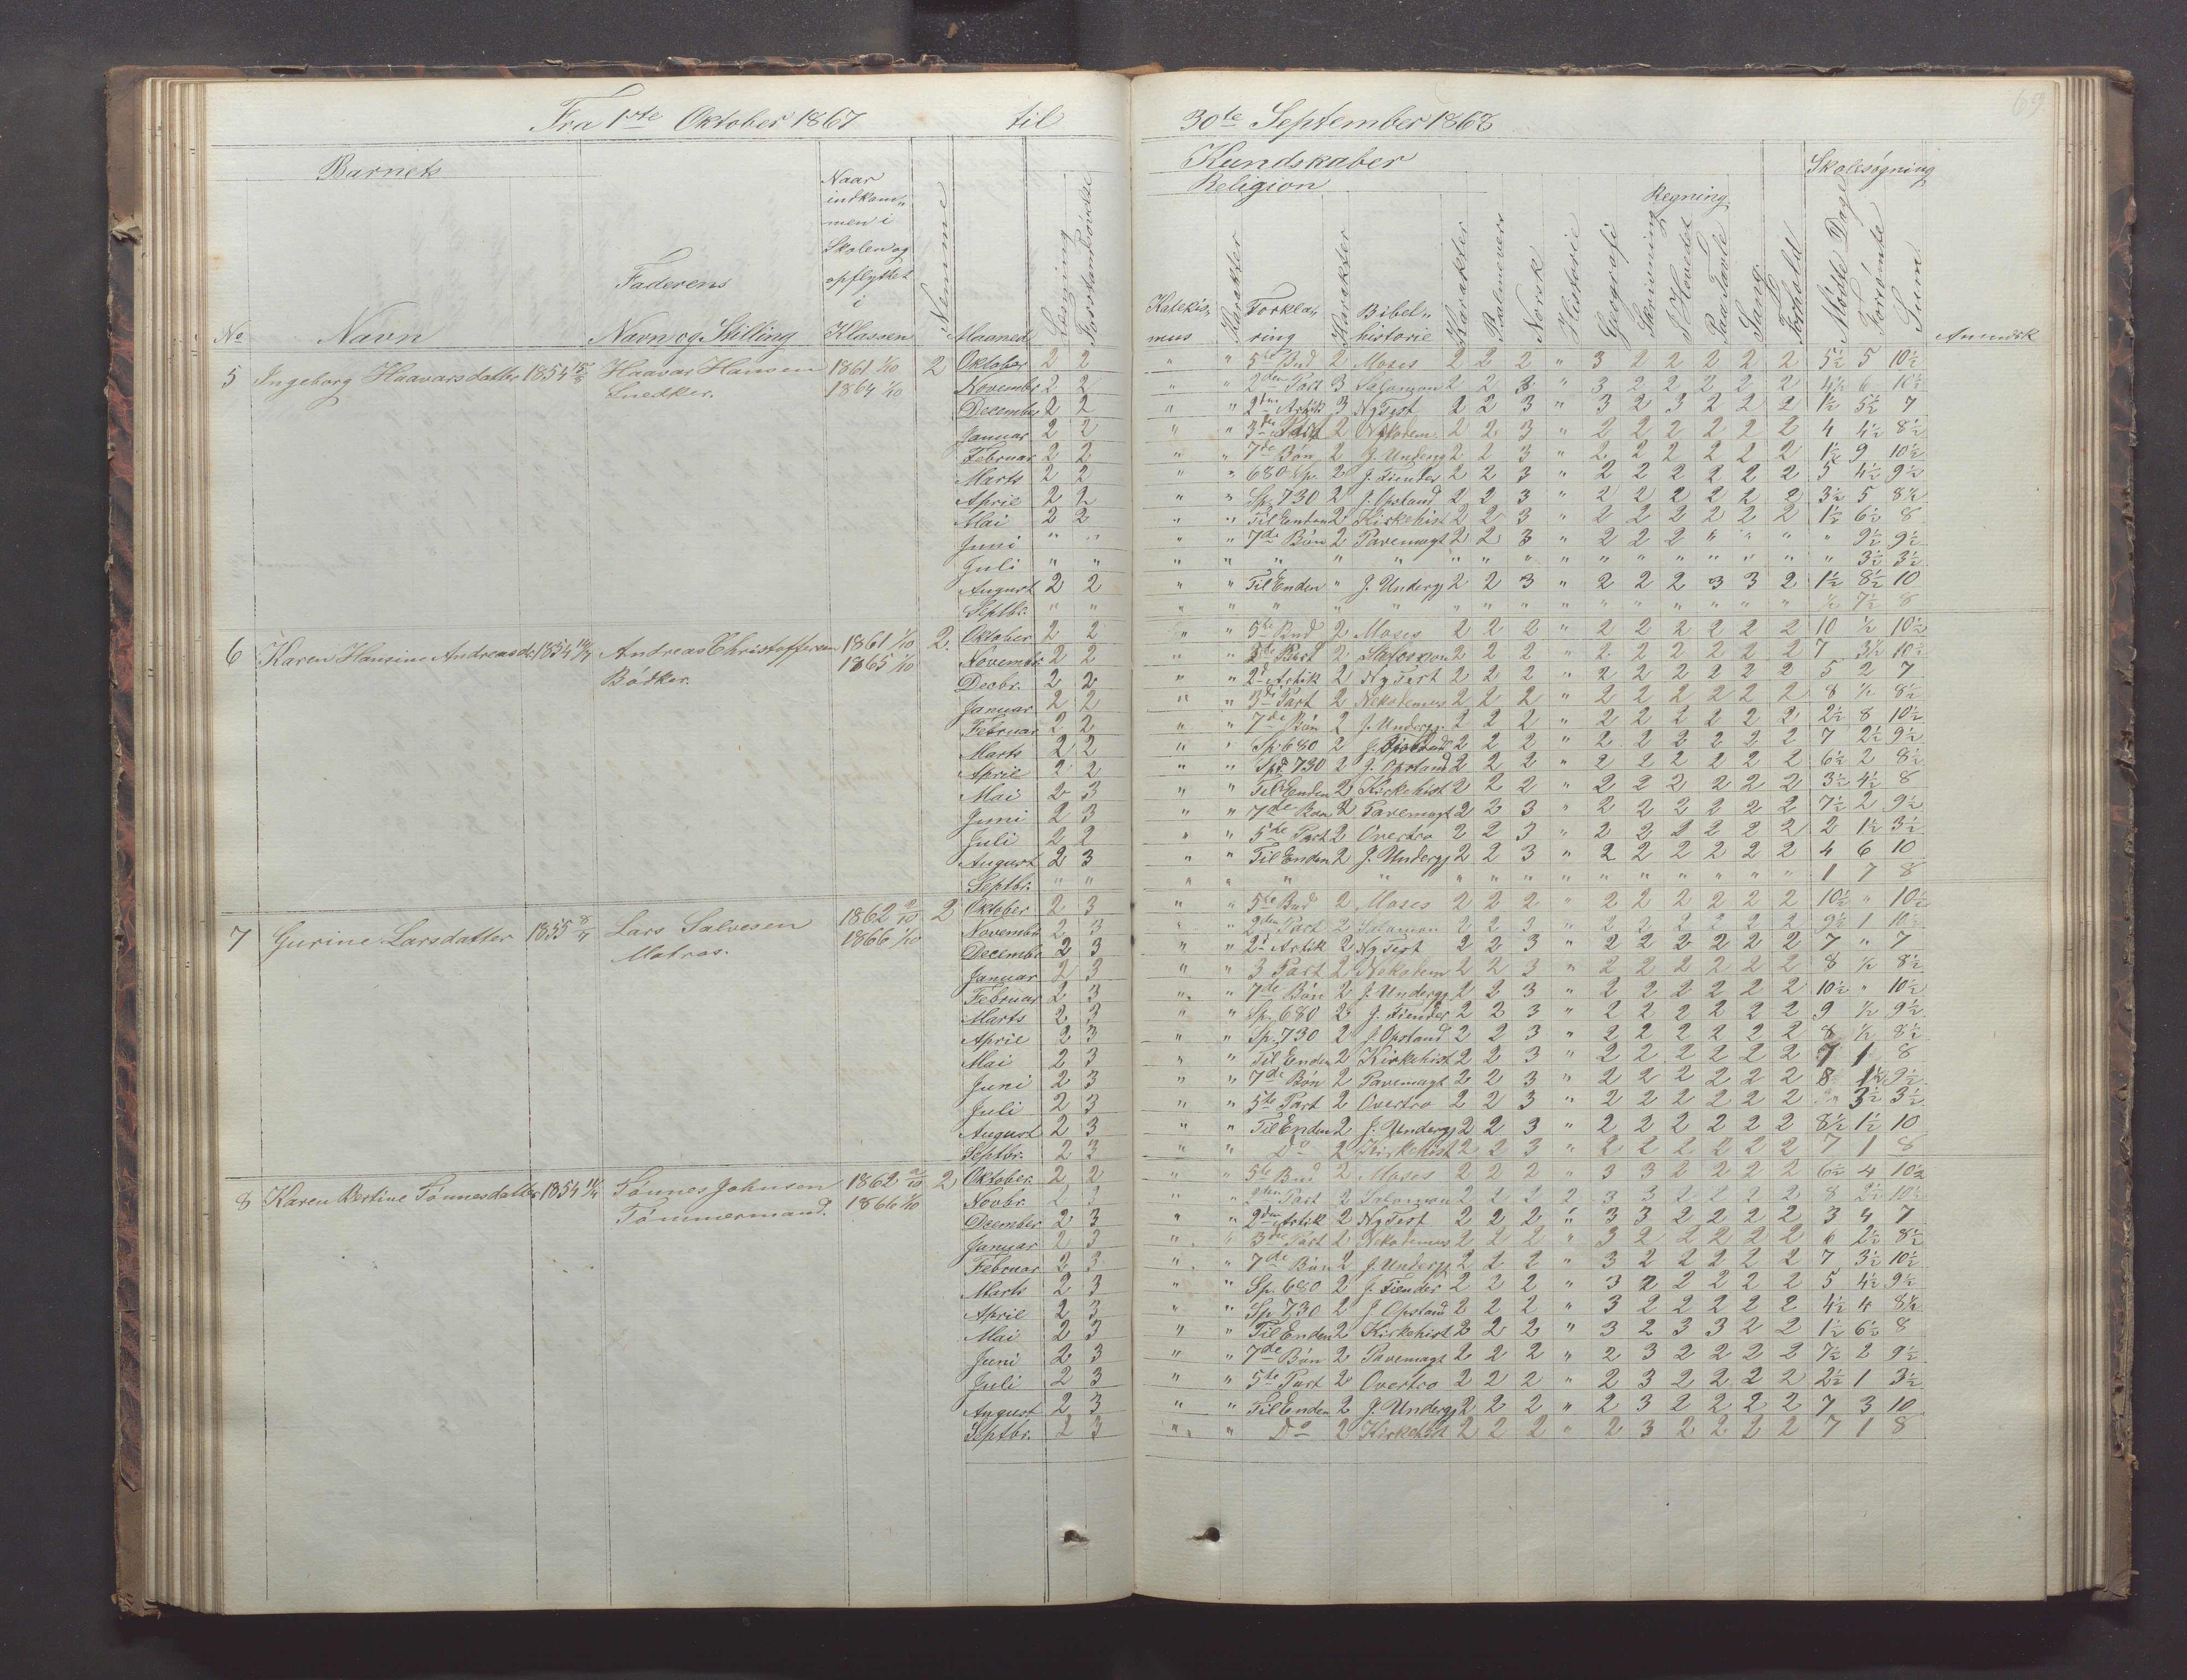 Fra 1ste Oktober 1867 til 30te September 1868
69
Barnets
Naar indkommen i Skolen og opflyttet i Klassen
Kundskaber
Religion
Regning
Skolesøgning
No Navn Faderens Navn og Stilling Nemme Maaned Læsning Forstandsøvelse
Katekismus Karakter Forklaring Karakter Bibelhistorie Karakter Psalmevers Norsk Historie Geografi Skrivning I Hovedet Paa Tavle Sang Forhold Mødte Dage Forsømte Sum Anmærk
5 Ingeborg Haavarsdatter 1854 Haavar Hansen 1861 1/10 2 Oktober 2 2 " " 5te Bud 2 Moses 2 2 2 " 3 2 2 2 2 2 5½ 5 10½
Snedker. 1864 1/10 November 2 2 " " 2den Part 3 Salomon 2 2 3 " 3 2 2 2 2 2 4½ 6 10½
December 2 2 " " 2den Artik 3 Ny Test 2 2 3 " 3 2 3 2 2 2 1½ 5½ 7
Januar 2 2 " " 3die Part 2 Nikodem. 2 2 3 " 2 2 2 2 2 2 4 4½ 8½
Februar 2 2 " " 7de Bøn 2 J. Underg 2 2 3 " 2 2 2 2 2 2 1½ 9 10½
Marts 2 2 " " 680 Sp. 2 J. Fiender 2 2 3 " 2 2 2 2 2 2 5 4½ 9½
April 2 2 " " Sp. 730 2 J. Opstand 2 2 3 " 2 2 2 2 2 2 3½ 5 8½
Mai 2 2 " " Til Enden 2 Kirkehist 2 2 3 " 2 2 2 2 2 2 1½ 6½ 8
Juni " " " " 7de Bøn 2 Pavemagt 2 2 3 " 2 2 2 " " " " 9½ 9½
Juli " " " " " " " " " " " " " " " " " " 3½ 3½
August 2 2 " " Til Enden " J. Undergj 2 2 3 " 2 2 2 3 3 2 1½ 8½ 10
Septbr. " " " " " " " " " " " " " " " " " ½ 7½ 8
6 Karen Hansine Andreasd. 1854 Andreas Christoffersen 1861 1/10 2. Oktober 2 2 " " 5te Bud 2 Moses 2 2 2 " 2 2 2 2 2 2 10 ½ 10½
Bødker. 1865 1/10 Novembr. 2 2 " " Part 2 2 2 2 " 2 2 2 2 2 2 7 3½ 10½
Decbr. 2 2 " " 2d Artik 2 Ny Test 2 2 2 " 2 2 2 2 2 2 5 2 7
Januar 2 2 " " 3die Part 2 Nekodemus 2 2 2 " 2 2 2 2 2 2 8 ½ 8½
Februar 2 2 " " 7de Bøn 2 J. Undergj. 2 2 2 " 2 2 2 2 2 2 2½ 8 10½
Marts 2 2 " " Sp. 680 2 J. 2 2 2 " 2 2 2 2 2 2 7 2½ 9½
April 2 2 " " Sp. 730 2 J. Opstand 2 2 2 " 2 2 2 2 2 2 6½ 2 8½
Mai 2 3 " " Til Enden 2 Kirkehist 2 2 2 " 2 2 2 2 2 2 3½ 4½ 8
Juni 2 3 " " 7de Bøn 2 Pavemagt 2 2 3 " 2 2 2 2 2 2 7½ 2 9½
Juli 2 2 " " 5te Part 2 Overtro 2 2 3 " 2 2 2 2 2 2 2 1½ 3½
August 2 3 " " Til Enden 2 J. Undergj 2 2 3 " 2 2 2 2 2 2 4 6 10
Septbr. " " " " " " " " " " " " " " " " 1 7 8
7 Gurine Larsdatter 1855 8/11 Lars Salvesen 1862 2 Oktober 2 3 " " 5te Bud 2 Moses 2 2 2 " 2 2 2 2 2 2 10½ " 10½
Matros. 1866 1/10 Novembr 2 3 " " 2den Part 2 Salomon 2 2 3 " 2 2 2 2 2 2 9½ 1 10½
Decembr 2 3 " " 2d Artik 2 Ny Test 2 2 3 " 2 2 2 2 2 2 7 " 7
Januar 2 3 " " 3 Part 2 Nekodem 2 2 3 " 2 2 2 2 2 2 8 ½ 8½
Februar 2 3 " " 7de Bøn 2 J. Undergj 2 2 3 " 2 2 2 2 2 2 10½ " 10½
Marts 2 3 " " Sp. 680 2 J. Fiender 2 2 3 " 2 2 2 2 2 2 9 ½ 9½
April 2 3 " " Sp. 730 2 J. Opstand 2 2 3 " 2 2 2 2 2 2 8 ½ 8½
Mai 2 3 " " Til Enden 2 Kirkehist 2 2 3 " 2 2 2 2 2 2 7 1 8
Juni 2 3 " " 7de Bøn 2 Pavemagt 2 2 3 " 2 2 2 2 2 2 8 1½ 9½
Juli 2 3 " " 5te Part 2 Overtro 2 2 3 " 2 2 2 2 2 2 " 3½ 3½
August 2 3 " " Til Enden 2 J. Undergj 2 2 3 " 2 2 2 2 2 2 8½ 1½ 10
Septbr. 2 3 " " Do 2 Kirkehist 2 2 3 " 2 2 2 2 2 2 7 1 8
8 Karen Bertine Tønnesdatter 1854 Tønnes Johnsen 1862 2 Oktober 2 2 " " 5te Bud 2 Moses 2 2 2 " 3 3 2 2 2 2 6½ 4 10½
Tømmermand. 1866 1/10 Novbr. 2 " " 2den Part 2 Salomon 2 2 2 2 3 3 2 2 2 2 8 2½ 10½
December 2 3 " " 2den Artik 2 Ny Test 2 2 2 " 3 3 2 2 2 2 3 4 7
Januar 2 3 " " 3die Part 2 Nekodemus 2 2 2 " 3 2 2 2 2 2 6 2½ 8½
Februar 2 3 " " 7de Bøn 2 J. Undergj. 2 2 2 " 3 2 2 2 2 2 7 3½ 10½
Marts 2 3 " " Sp. 680 2 J. Fiender 2 2 2 " 3 2 2 2 2 2 5 4½ 9½
April 2 3 " " Sp. 730 2 J. Opstand 2 2 2 " 3 2 2 2 2 2 4½ 4 8½
Mai 2 3 " " Til Enden 2 Kirkehist 2 2 2 " 3 2 3 3 2 2 1½ 6½ 8
Juni 2 3 " " 7de Bøn 2 Pavemagt 2 2 2 " 2 3 2 2 2 2 7½ 2 9½
Juli 2 3 " " 5te Part 2 Overtro 2 2 2 " 2 3 2 2 2 2 2½ 1 3½
August 2 3 " " Til Enden 2 J. Undergj 2 2 2 " 2 3 2 2 2 2 7 3 10
Septbr. 2 3 " " Do 2 Kirkehist 2 2 2 " 2 3 2 2 2 2 7 1 8